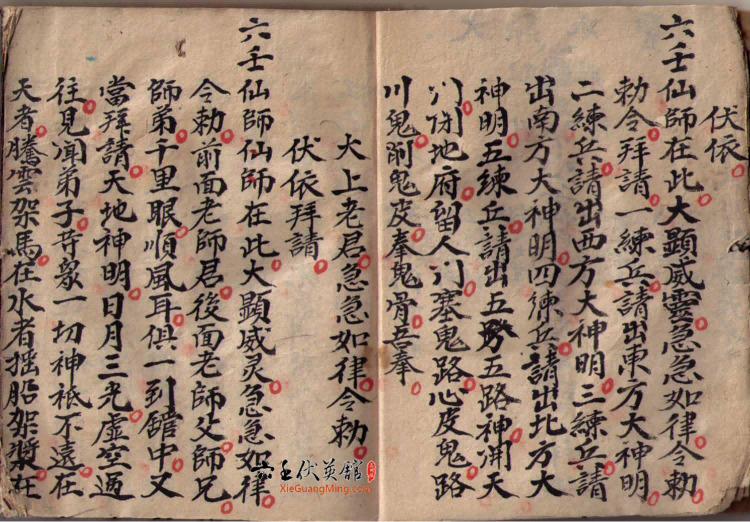 伏依
六壬仙師在此大顯威靈急急如律令勅
勅令拜請一練兵請出東方大神明
二練兵請出西方大神明三練兵請
出南方大神明四練兵請出北方大
神明五練兵請出五路五路神開天
门闭地府留人门塞鬼路心皮鬼路
川鬼削鬼皮奉鬼骨吾奉
大上老君急急如律令勅
伏依拜請
六壬仙師仙師在此大顯威灵急急如律
令勅前面老師君後面老師父師兄
師弟千里眼順風耳俱一到舘中又
當拜請天地神明日月三光虛空過
往見闻弟子衆一切神祇不遠在
天者騰雲架馬在水者拙船架漿在
六壬伏英館
XieGuangMing.com